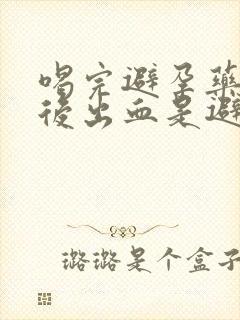 喝完避孕药
後出血是避
璐璐是个盒子